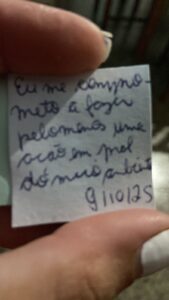 Eu me compro-
meto a fazer
pelo menos uma
ação em prol
do meio ambien
9/10/25